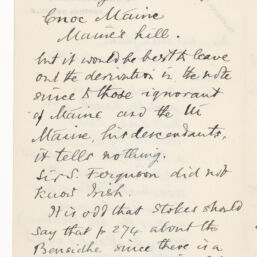 Cnoc Maine
Maine's hill.
but it would be best to leave
out the derivation in the note
since to those ignorant
of Maine and the Ui
Maine, his descendants,
it tells nothing.
Sir S. Ferguson did not
know Irish.
It is odd that Stokes should
say that p 274 about the
Bensidhe since there is a